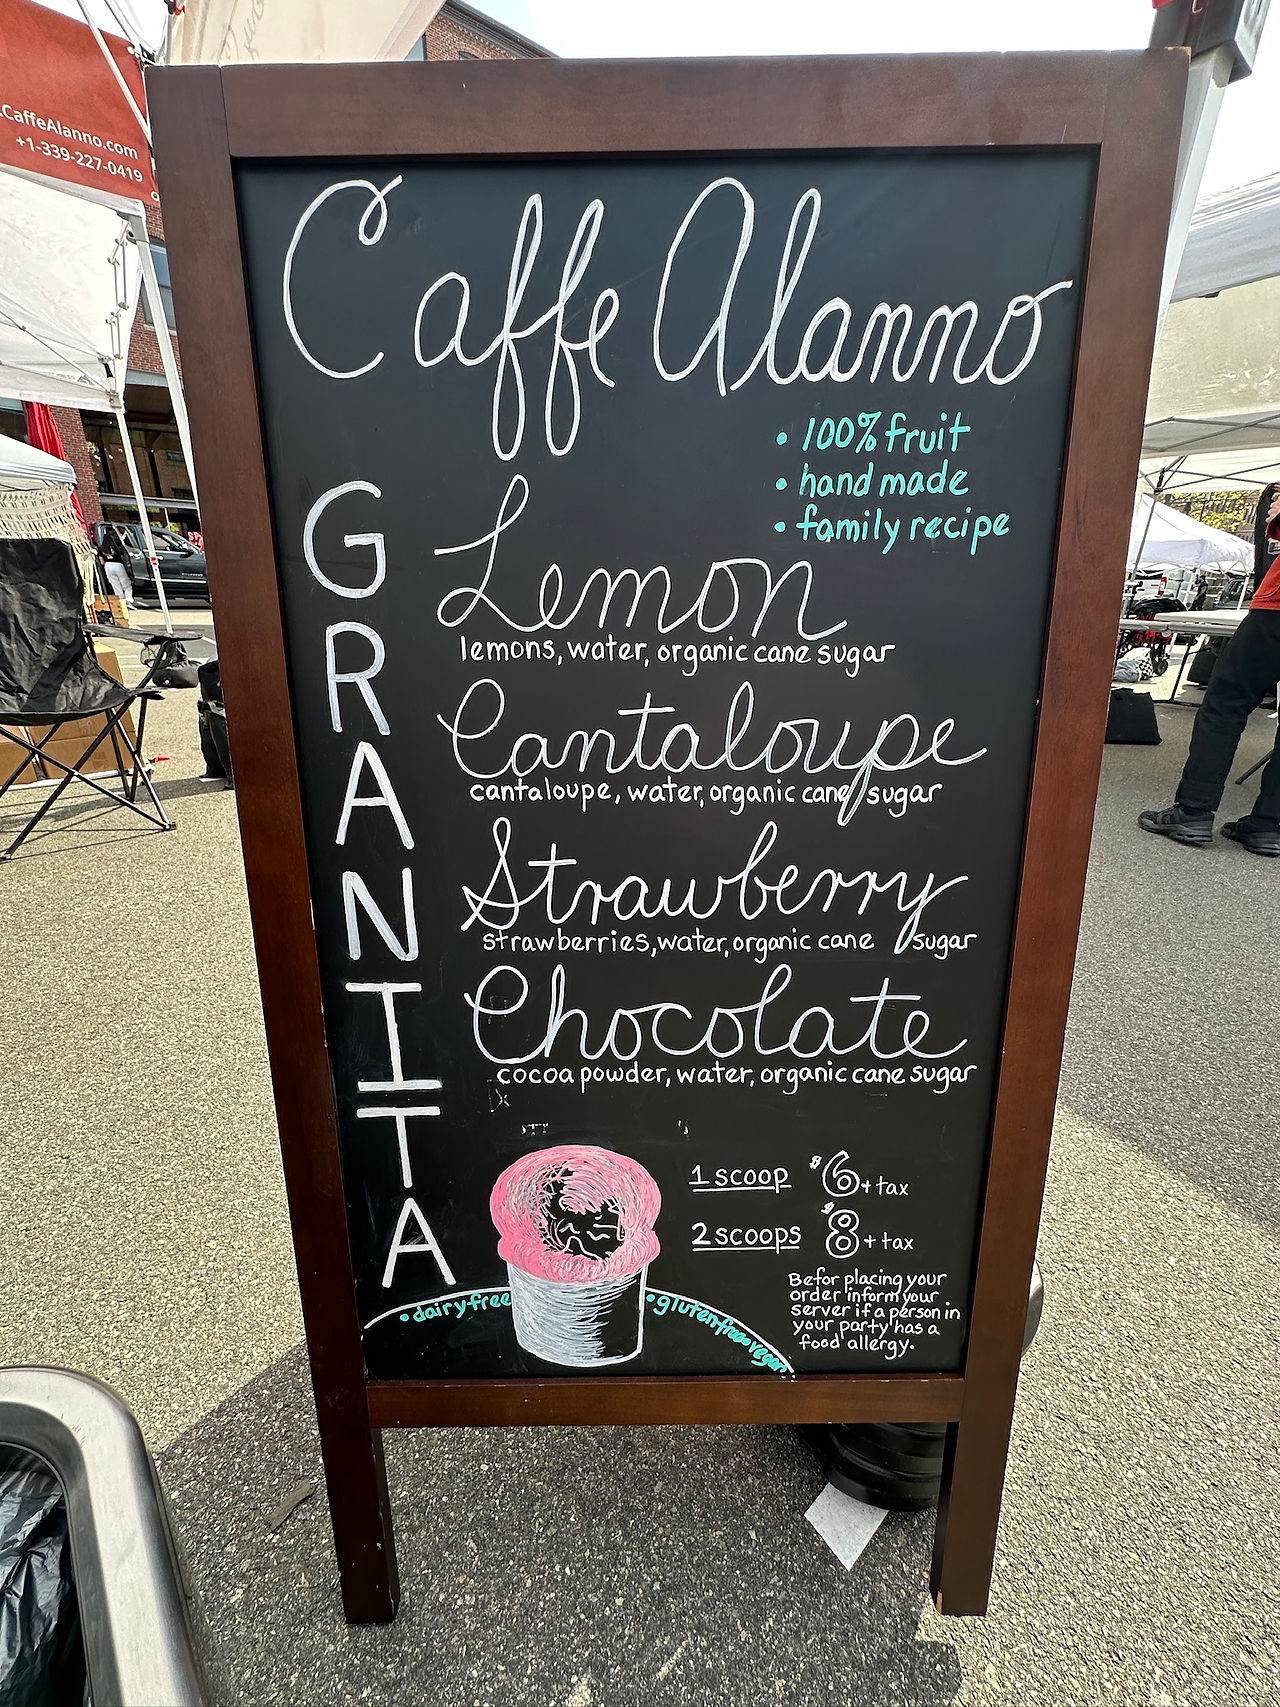 .CaffeAlanno.com
+1-339-227-0419
Caffe Alanno
• 100% fruit
• hand made
• family recipe
GRANITA
Lemon
lemons, water, organic cane sugar
Cantaloupe
cantaloupe, water, organic cane sugar
Strawberry
strawberries, water, organic cane sugar
Chocolate
cocoa powder, water, organic cane sugar
1 scoop $6 + tax
2 scoops $8 + tax
Befor placing your
order inform your
server if a person in
your party has a
food allergy.
• dairy free • gluten free • vegan